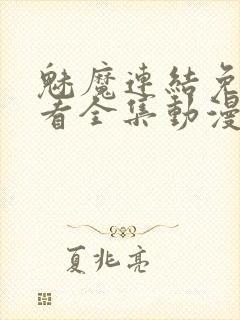 魅魔連結免
看全集動漫
夏兆亮